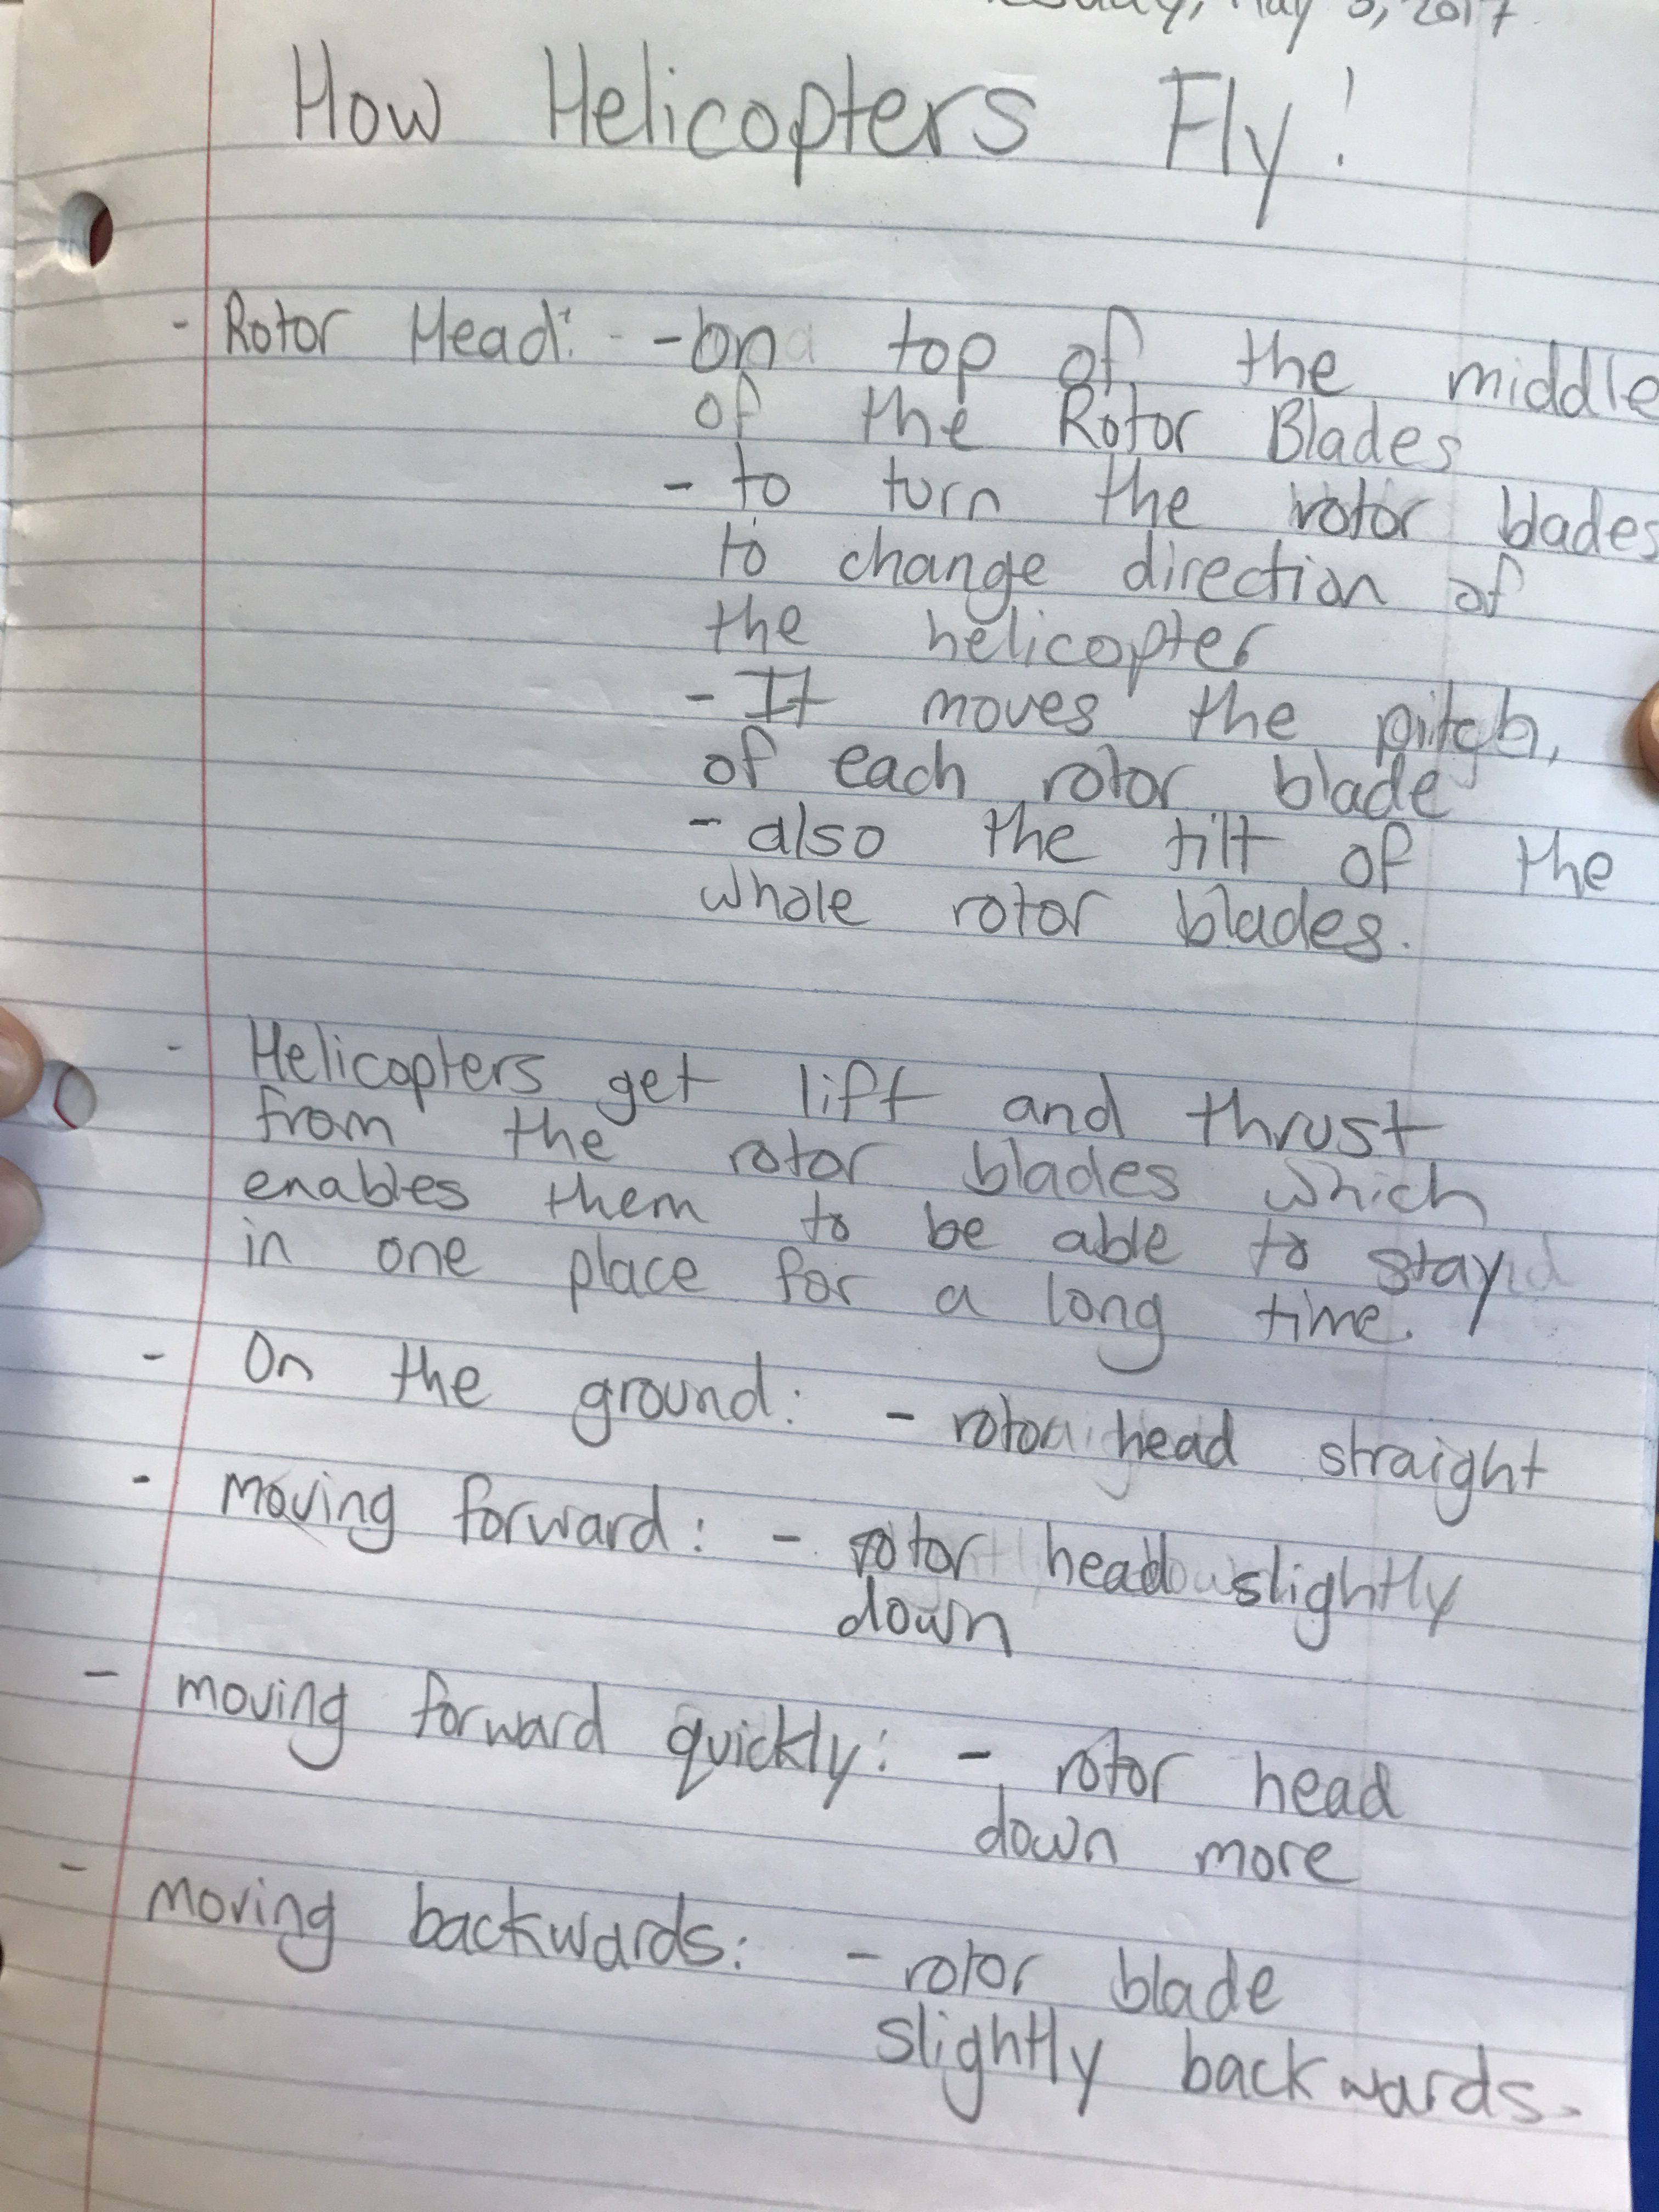 May 3, 2017
How Helicopters Fly!
- Rotor Head: - on top of the middle
of the Rotor Blades
- to turn the rotor blades
to change direction of
the helicopter
- It moves the pitch,
of each rotor blade
- also the tilt of the
whole rotor blades.
- Helicopters get lift and thrust
from the rotor blades which
enables them to be able to stay
in one place for a long time.
- On the ground: - rotor head straight
- moving forward: - rotor head slightly
down
- moving forward quickly: - rotor head
down more
- moving backwards: - rotor blade
slightly backwards.